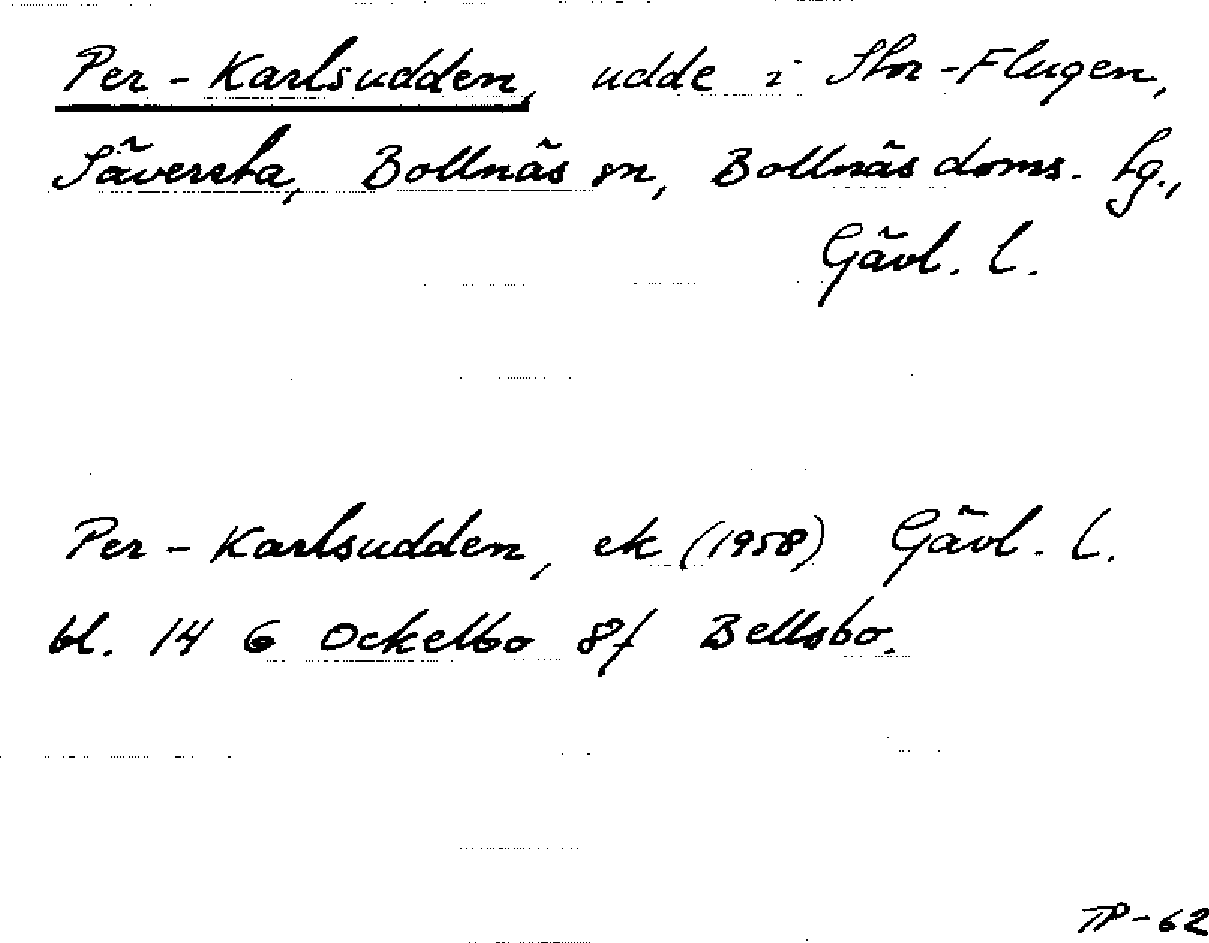 Per-Karlsudden, udde i Stor-Flugen,
Säversta, Bollnäs sn, Bollnäs doms. tg.,
Gävl. l.
Per-Karlsudden, ek (1958) Gävl. l.
bl. 14 G Ockelbo 8f Bellsbo.
TP-62